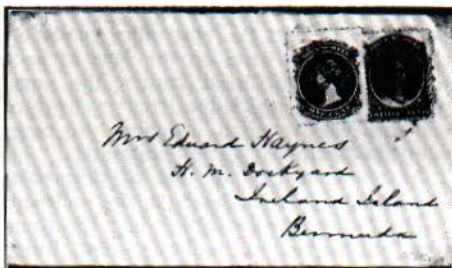 ONE CENT
Mrs Edward Haynes
H. M. Dockyard
Ireland Island
Bermuda